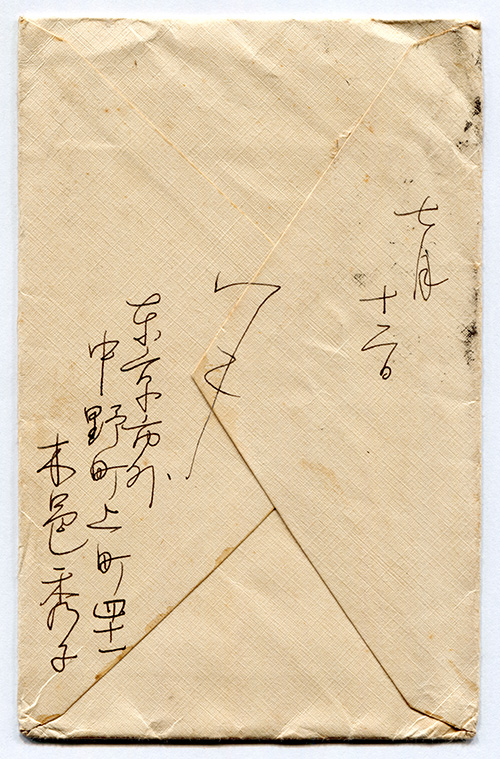 七月
十二日
〆
東京市外
中野町上町四十一
木邑秀子